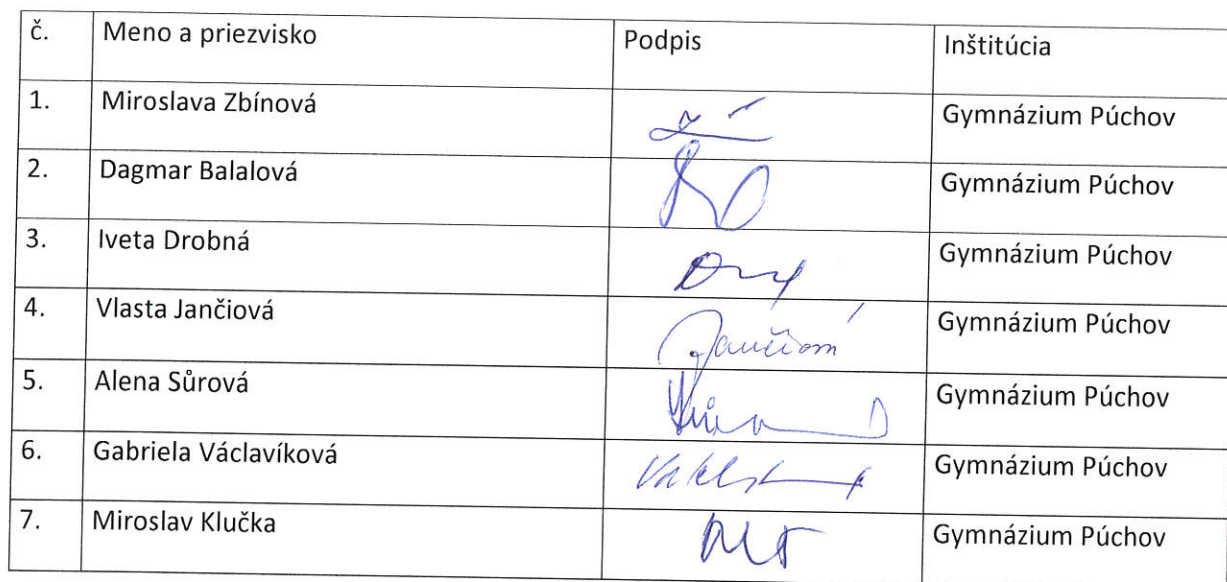 č. Meno a priezvisko Podpis Inštitúcia
1. Miroslava Zbínová Gymnázium Púchov
2. Dagmar Balalová Gymnázium Púchov
3. Iveta Drobná Gymnázium Púchov
4. Vlasta Jančiová Jančiová Gymnázium Púchov
5. Alena Sůrová Gymnázium Púchov
6. Gabriela Václavíková Gymnázium Púchov
7. Miroslav Klučka Gymnázium Púchov